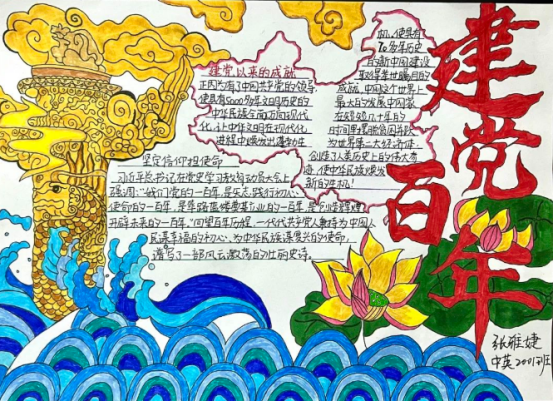 建党百年
建党以来的成就
正因为有了中国共产党的领导,
使具有5000多年文明历史的
中华民族全面迈向现代
化,让中华文明在现代化
进程中焕发出蓬勃生
机,使具有
70多年历史
的新中国建设
取得举世瞩目的
成就,中国这个世界上
最大的发展中国家
在短短几十年的
时间里摆脱贫困并跃
为世界第二大经济体,
创造了人类历史上的伟大奇
迹,使中华民族焕发
新的生机!
坚定信仰 担使命
习近平总书记在党史学习教育动员大会上
强调:“我们党的一百年,是矢志践行初心
使命的一百年,是筚路蓝缕奠基立业的一百年,是创造辉煌
开辟未来的一百年。”回望百年历程,一代代共产党人秉持为中国人
民谋幸福的初心、为中华民族谋复兴的使命,
谱写了一部风云激荡的壮丽史诗。
张雅婕
中英2001班